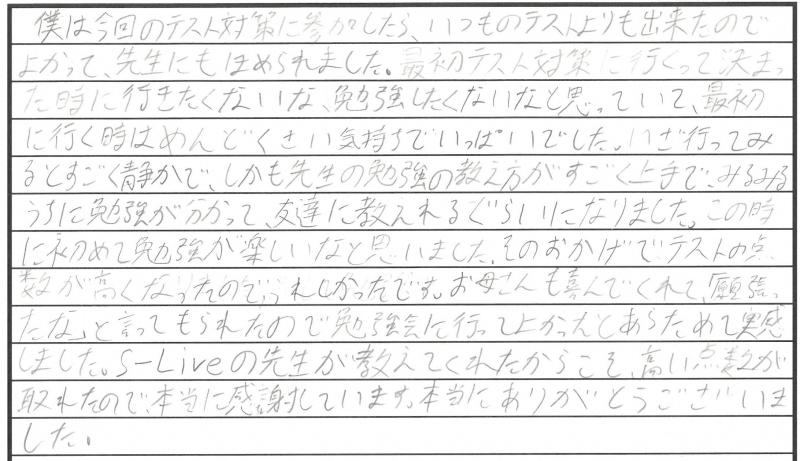 僕は今回のテスト対策に参加したら、いつものテストよりも出来たので
よかって、先生にもほめられました。最初テスト対策に行くって決まっ
た時に行きたくないな、勉強したくないなと思っていて、最初
に行く時はめんどくさい気持ちでいっぱいでした。いざ行ってみ
るとすごく静かで、しかも先生の勉強の教え方がすごく上手で、みるみる
うちに勉強が分かって、友達に教えれるぐらいになりました。この時
に初めて勉強が楽しいなと思いました。そのおかげでテストの点
数が高くなったので、うれしかったです。お母さんも喜んでくれて、「頑張っ
たな」と言ってもられたので勉強会に行って良かったとあらためて実感
しました。S-Liveの先生が教えてくれたからこそ、高い点数が
取れたので、本当に感謝しています。本当にありがとうございま
した。